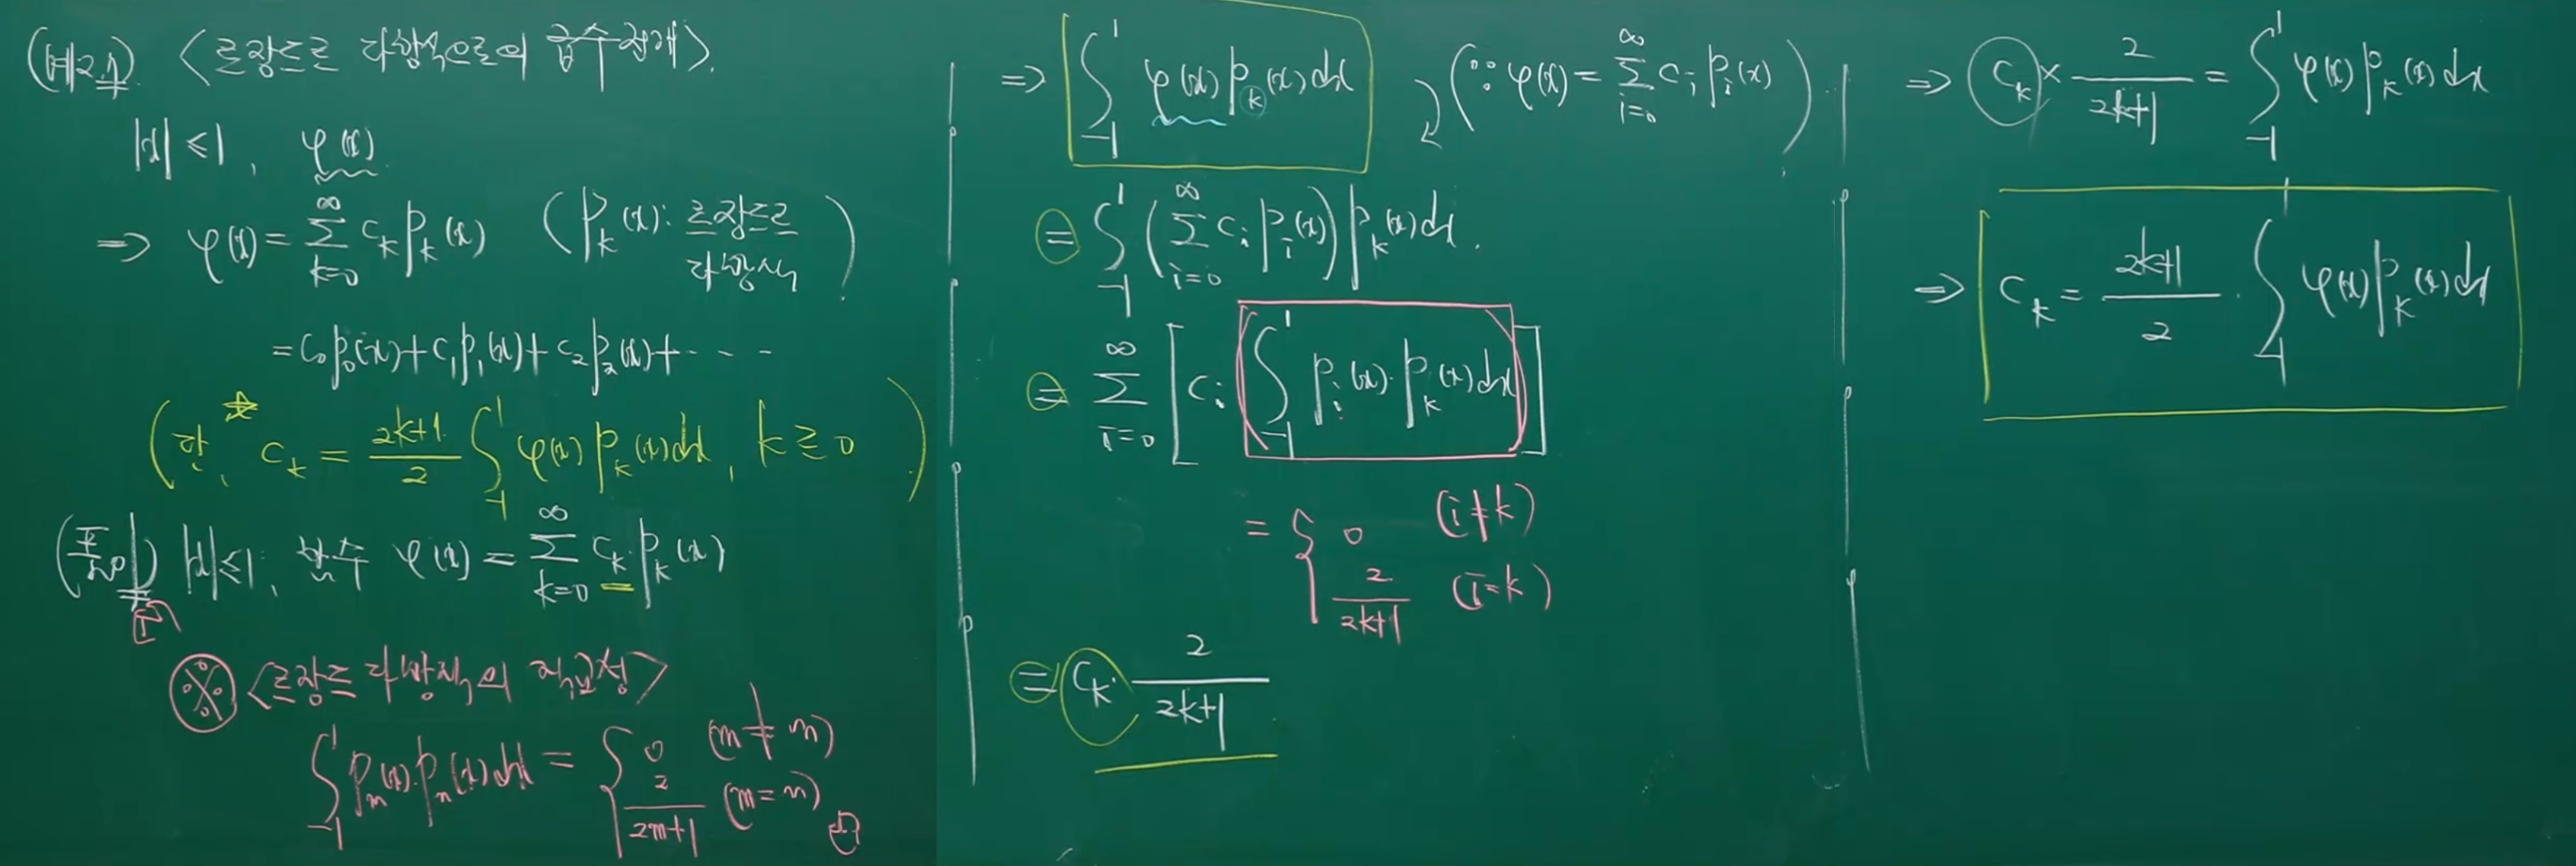 〈르장드르 다항식으로의 급수전개〉.
|x| ≤ 1, φ(x)
⇒ φ(x) = ∑_{k=0}^{∞} c_k P_k(x) (P_k(x): 르장드르 다항식)
= c_0 P_0(x) + c_1 P_1(x) + c_2 P_2(x) + ----
(단, ☆ c_k = \frac{2k+1}{2} ∫_{-1}^{1} φ(x) P_k(x) dx, k ≥ 0)
|x| ≤ 1, 함수 φ(x) = ∑_{k=0}^{∞} c_k P_k(x)
※ 〈르장드르 다항식의 직교성〉
∫_{-1}^{1} P_m(x)·P_n(x) dx = { 0 (m ≠ n)
\frac{2}{2m+1} (m = n)
⇒ ∫_{-1}^{1} φ(x) P_k(x) dx (∵ φ(x) = ∑_{i=0}^{∞} c_i P_i(x))
= ∫_{-1}^{1} (∑_{i=0}^{∞} c_i P_i(x)) P_k(x) dx.
= ∑_{i=0}^{∞} [c_i (∫_{-1}^{1} P_i(x)·P_k(x) dx)]
= { 0 (i ≠ k)
\frac{2}{2k+1} (i = k)
= c_k · \frac{2}{2k+1}
⇒ c_k × \frac{2}{2k+1} = ∫_{-1}^{1} φ(x) P_k(x) dx
⇒ c_k = \frac{2k+1}{2} · ∫_{-1}^{1} φ(x) P_k(x) dx